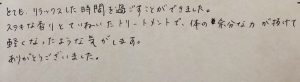 とても、リラックスした時間を過ごすことができました。
ステキな香りとていねいなトリートメントで、体の余分な力が抜けて
軽くなったような気がします。
ありがとうございました。